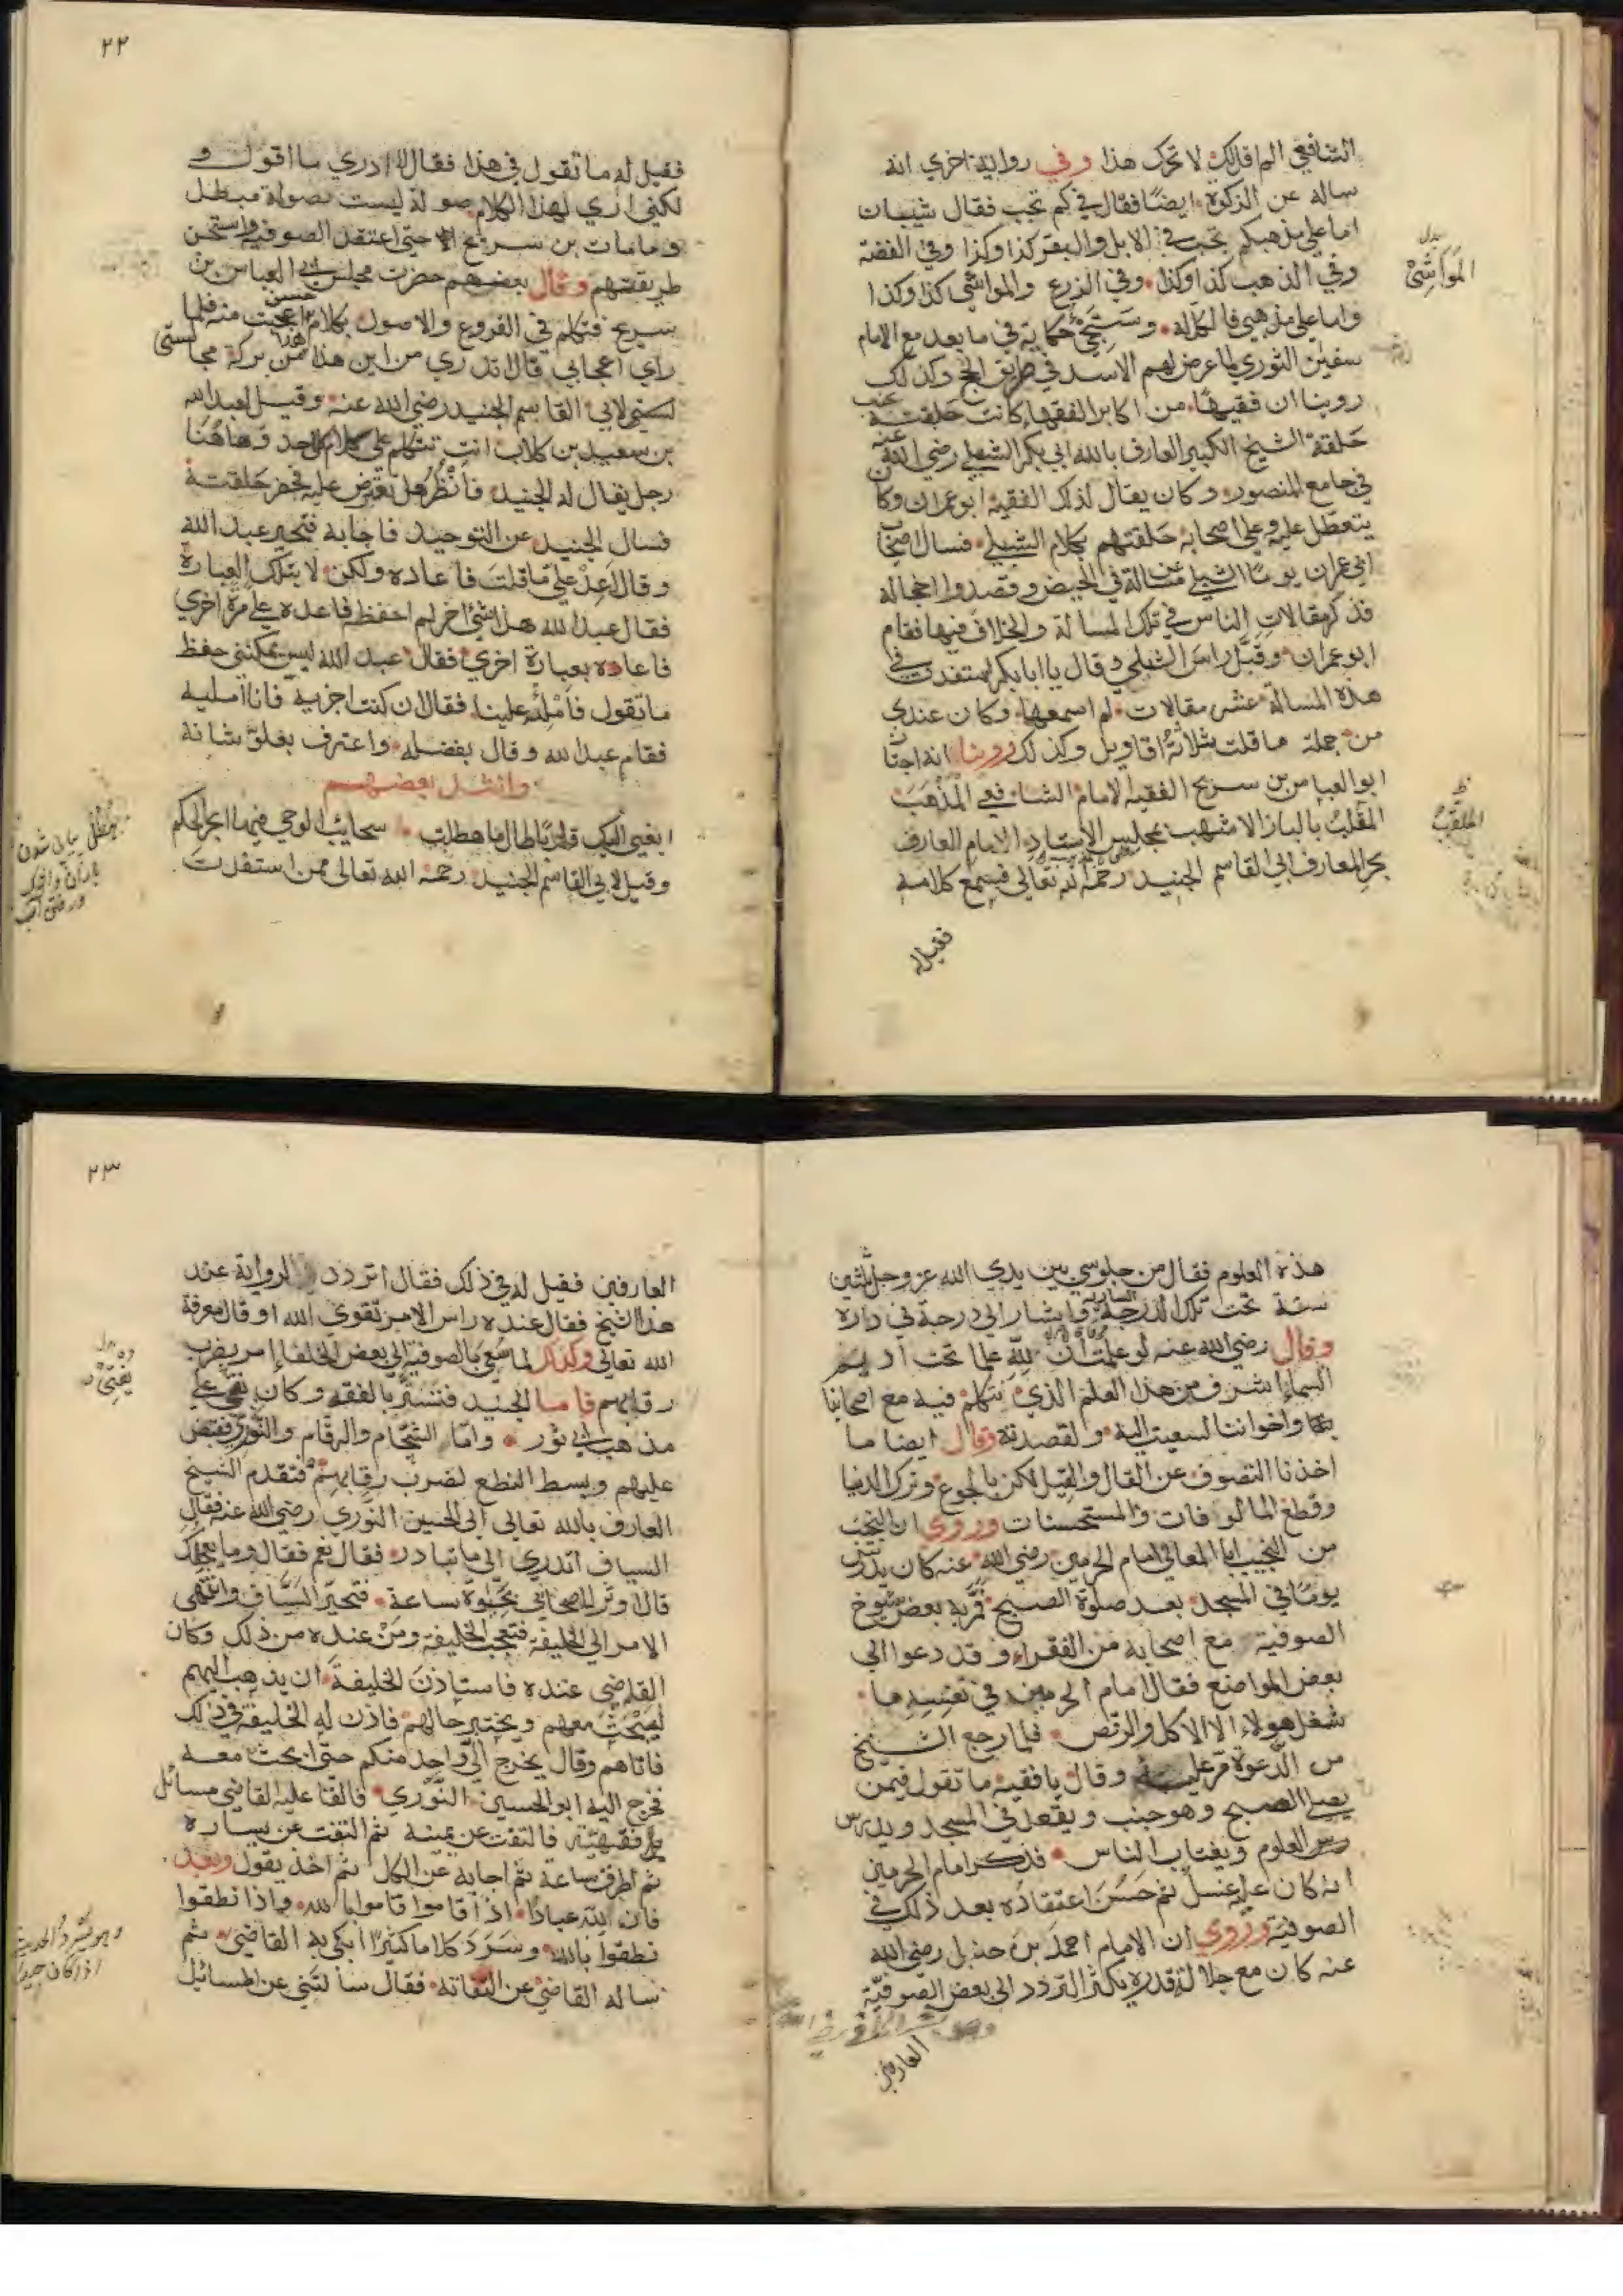 الشافعي الم اقل لك لا تحرك هذا وفي رواية اخري انه
ساله عن الزكوة ايضا فقال في كم تجب فقال شيبان
اما علي مذهبكم تجب في الابل والبقر كذا وكذا وفي الفضة
وفي الذهب كذا وكذا وفي الزرع والمواشي كذا وكذا
المَواشِيْ
واما علي مذهبي فالكل له وستجئ حكايته في ما بعد مع الامام
سفين الثوري لما عرض لهم الاسد في طريق الحج وكذلك
روينا ان فقيها من اكابر الفقها كانت حلقته
حلقة الشيخ الكبير العارف بالله ابي بكر الشبلي رضي الله عنه
في جامع المنصور وكان يقال لذلك الفقيه ابو عمران وكان
يتعطل عليه وعلي اصحابه حلقتهم بكلام الشبلي فسال اصحاب
ابي عمران يوما الشبلي عن مسالة في الحيض وقصدوا اخجاله
فذكر مقالات الناس في تلك المسالة والخلاف فيها فقام
ابو عمران وقبّل راس الشبلي وقال يا ابا بكر استفدت في
هذه المسالة عشر مقالات لم اسمعها وكان عندي
من جملة ما قلت ثلاثة اقاويل وكذلك روينا انه اجتاز
ابو العباس بن سريج الفقيه الامام الشافعي المذهب
المقلب بالباز الاشهب بمجلس الاستاد الامام العارف
الملقب
بحر المعارف ابي القاسم الجنيد رحمه الله تعالي فسمع كلامه
فقيل له
٢٢
فقيل له ما تقول في هذا فقال لا ادري ما اقول و
لكني اري لهذا الكلام صولة ليست بصولة مبطل
وما مات بن سريج الا حتي اعتقد الصوفية واستحسن
طريقتهم وقال بعضهم حضرت مجلس ابي العباس بن
سريج فتكلم في الفروع والاصول بكلام حسن اعجبت منه فلما
راي اعجابي قال اتدري من اين هذا هذا من بركة مجالستي
لسني لابي القاسم الجنيد رضي الله عنه وقيل لعبد الله
بن سعيد بن كلاب انت تتكلم علي كلام كل احد وهاهنا
رجل يقال له الجنيد فانظر هل تعترض عليه فحضر حلقته
فسال الجنيد عن التوحيد فاجابه فتحير عبد الله
وقال اعد علي ما قلت فاعاده ولكن لا بتلك العبارة
فقال عبد الله هذا شئ اخر لم احفظ فاعده علي مرة اخري
فاعاده بعبارة اخري فقال عبد الله ليس يمكنني حفظ
ما تقول فامله علينا فقال ان كنت اجزيه فانا امليه
فقام عبد الله وقال بفضله واعترف بعلو شانه
وانشد بعضهم
ابغي اليك قلوبا طال ما هطلت سحايب الوحي فيها ابحر الحكم
وقيل لابي القاسم الجنيد رحمه الله تعالى ممن استفدت
هذه العلوم فقال من جلوسي بين يدي الله عز وجل ثلثين
سنة تحت تلك الدرجة واشار الي درجة في داره
وقال رضي الله عنه لو علمت ان لله علما تحت اديم
السماء اشرف من هذا العلم الذي نتكلم فيه مع اصحابنا
واخواننا لسعيت اليه ولقصدته وقال ايضا ما
اخذنا التصوف عن القال والقيل لكن بالجوع وترك الدنيا
وقطع المالوفات والمستحسنات وروي ان النجيب
من النجيب ابا المعالي امام الحرمين رضي الله عنه كان يدرس
يوما في المسجد بعد صلوة الصبح فمر به بعض شيوخ
الصوفية مع اصحابه من الفقراء وقد دعوا الي
بعض المواضع فقال امام الحرمين في نفسه ما
شغل هولاء الا الاكل والرقص فلما رجع الشيخ
من الدعوة مر عليه وقال يا فقيه ما تقول فيمن
يصلي الصبح وهو جنب ويقعد في المسجد ويدرس
العلوم ويغتاب الناس فذكر امام الحرمين
انه كان عليه غسل ثم حسن اعتقاده بعد ذلك في
الصوفية وروي ان الامام احمد بن حنبل رضي الله
عنه كان مع جلالة قدره يكثر التردد الي بعض الصوفية
العارفين
٢٣
العارفين فقيل له في ذلك فقال اتردد الرواية عند
هذا الشيخ فقال عنده راس الامر تقوي الله او قال معرفة
الله تعالي وكذلك لما سعي بالصوفية الي بعض الخلفاء امر بضرب
رقابهم فاما الجنيد فتستر بالفقه وكان يفتي علي
يفتي
مذهب ابي ثور واما الشحام والرقام والنوري فقبض
عليهم وبسط النطع لضرب رقابهم فتقدم الشيخ
العارف بالله تعالي ابي الحسين النوري رضي الله عنه فقال
السياف اتدري الي ما تبادر فقال نعم فقال وما يعجلك
قال اوثر اصحابي بحيوة ساعة فتحير السياف وانتهى
الامر الي الخليفة فتعجب الخليفة ومن عنده من ذلك وكان
القاضي عنده فاستاذن الخليفة ان يذهب اليهم
ليبحث معهم ويختبر حالهم فاذن له الخليفة في ذلك
فاتاهم وقال يخرج الي واحد منكم حتى ابحث معه
فخرج اليه ابو الحسين النوري فالقا عليه القاضي مسائل
فقهية فالتفت عن يمينه ثم التفت عن يساره
ثم اطرق ساعة ثم اجابه عن الكل ثم اخذ يقول وبعد
فان لله عبادا اذا قاموا قاموا بالله واذا نطقوا
نطقوا بالله وسرد كلاما كثيرا ابكي به القاضي ثم
ساله القاضي عن التفاته فقال سالتني عن المسائل